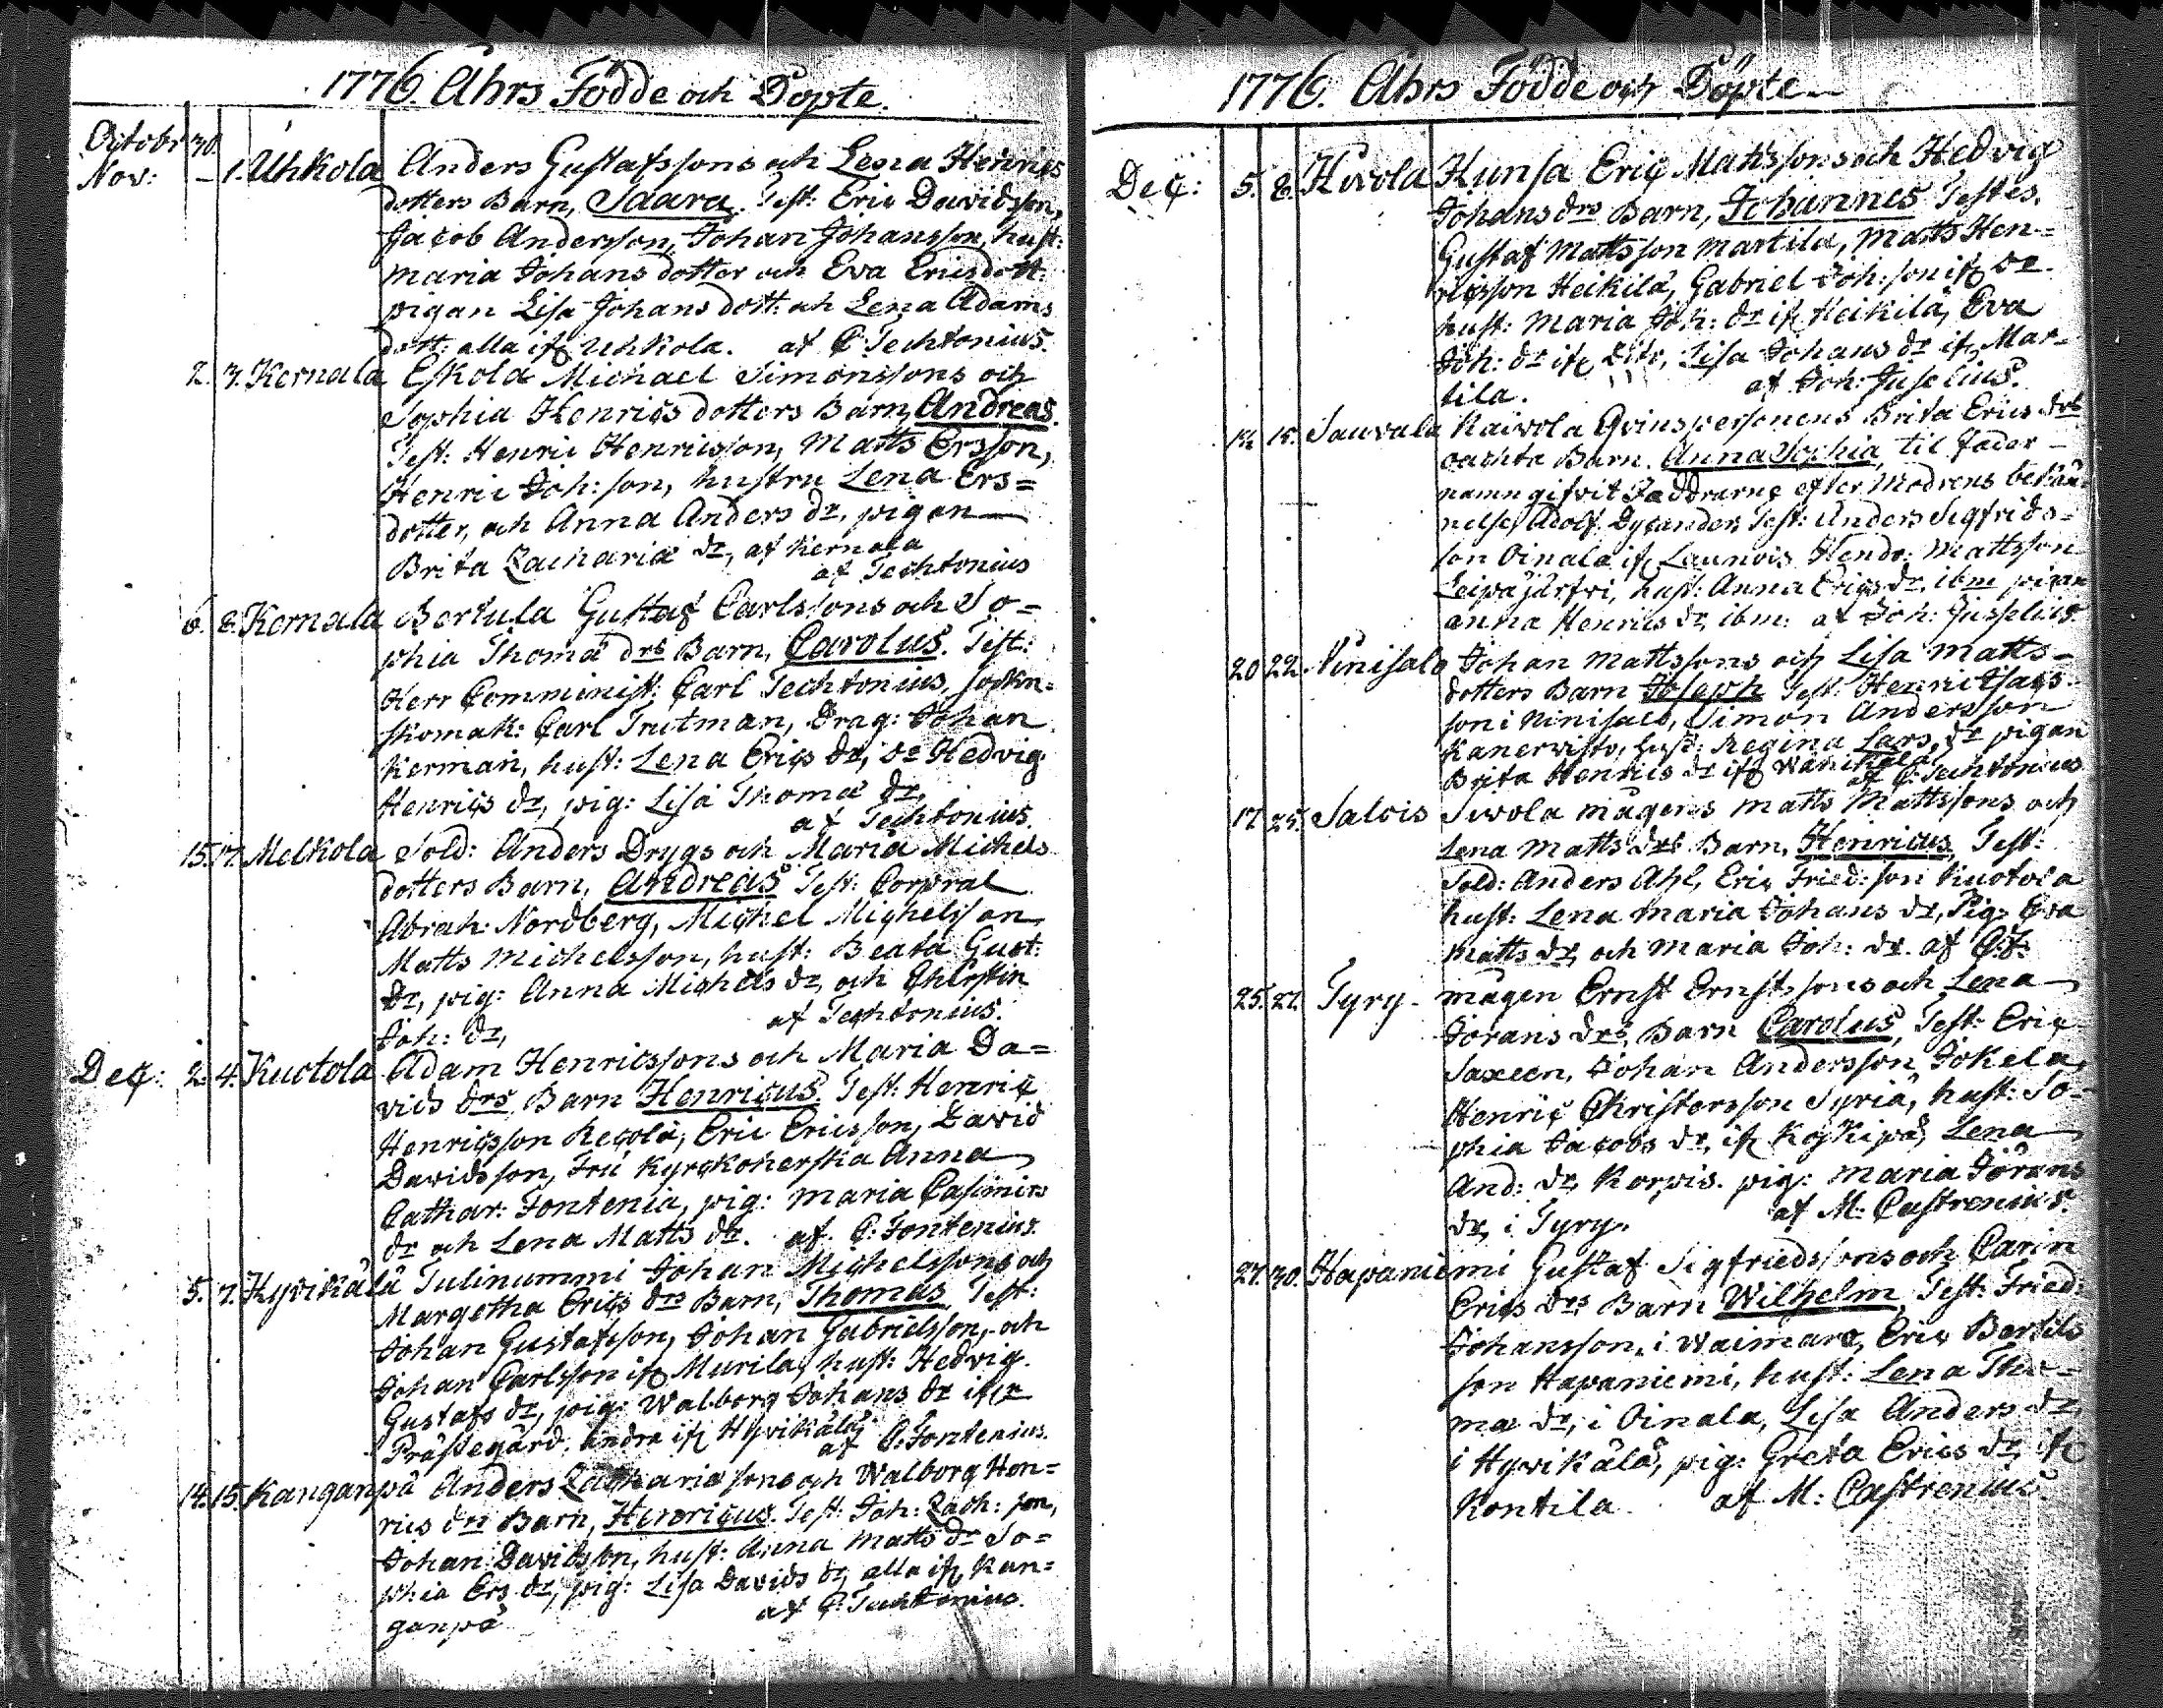 1776. Ahrs Födde och Döpte.
Octobr 30.
Nov: – 1. Uhkola Anders Gustafssons och Lena Henrics
dotters Barn, Saara. Test: Eric Davidsson,
Jacob Andersson, Johan Johansson, hust:
Maria Johans dotter och Eva Ericsdott:
pigan Lisa Johans dott: och Lena Adams
dott: alla if. Uhkola. af C Techtonius.
2. 3. Kernala Eskola Michael Simonssons och
Sophia Henrics dotters Barn, Andreas.
Test: Henric Henricsson, Matts Ersson,
Henric Joh: son, hustru Lena Ers=
dotter, och Anna Anders dr, pigan
Brita Zachariæ dr, af Kernala
af Techtonius
6. 8. Kernala Bertula Gustaf Carlssons och So=
phia Thomæ drs Barn, Carolus. Test:
Herr Comminist: Carl Techtonius, sockn=
skomak: Carl Trutman, Drag: Johan
Kerman, hust: Lena Erics dr, do Hedvig
Henrics dr, pig: Lisa Thomæ dr,
af Techtonius.
15. 17. Melkola Sold: Anders Drygs och Maria Michels
dotters Barn, Andreas Test: Corporal
Abrah: Nordberg, Michel Michelsson,
Matts Michelsson, hust: Beata Gust:
dr, pig: Anna Michels dr, och Christin
Joh: dr, af Techtonius.
Dec: 2. 4. Kuotola Adam Henricssons och Maria Da=
vids drs Barn Henricus. Test: Henric
Henricsson Recola, Eric Ericsson, David
Davidsson, Fru Kyrckoherskan Anna
Cathar: Fontenia, pig: Maria Casimirs
dr och Lena Matts dr. af C: Fontenius.
5. 7. Hyvikälä Tulinummi Johan Michelssons och
Margetha Erics drs Barn, Thomas, Test:
Johan Gustafsson, Johan Gabrielsson, och
Johan Carlsson if. Murila, hust: Hedvig
Gustafs dr, pig: Walborg Johans dr ifrn
Prästegård, andra if. Hyvikälä,
af C: Fontenius.
14. 15. Kanganpä Anders Zachariæ sons och Walborg Hen=
rics drs Barn, Henricus. Test: Joh: Zach: son,
Johan Davidsson, hust: Anna Matts dr So=
phia Ers dr, pig: Lisa Davids dr, alla if. Kan=
ganpä af C: Techtonius.
1776. Ahrs Födde och Döpte
Dec: 5. 8. Hivola Hunsa Eric Mattssons och Hedvig
Johans drs Barn, Johannes Testes.
Gustaf Mattsson Martila, Matts Hen=
ricsson Heikilä, Gabriel Joh: son if. do
hust: Maria Joh: dr if. Heikilä, Eva
Joh: dr if. Dito, Lisa Johans dr if. Mar=
tila. af Joh: Juselius.
14 15. Sauvala Kaivola Qvinspersonens Brita Erics drs
oächta Barn. Anna Sophia, til fader
namn gifvit Faddrarne efter Modrens bekän=
nelse, Adolf Dycander Test: Anders Sigfrids=
son Oinala if. Launois Hendr: Mattsson
Leipäjärfvi, hust: Anna Erics dr, ibm pigan
Anna Henrics dr, ibm: af Joh: Juselius.
20 22. Ninisalo Johan Mattssons och Lisa Matts=
dotters Barn Joseph Test: Henric Isacs
son i Ninisalo, Simon Andersson
Kanervisto, hust: Regina Lars dr pigan
Brita Henrics dr if. Wanikala
af C: Techtonius
17. 25. Salois Sivola Mågens Matts Mattssons och
Lena Matts drs Barn, Henricus, Test:
Sold: Anders Ahl, Eric Fried: son Kuotola
hust: Lena Maria Johans dr, Pig: Eva
Matts dr, och Maria Joh: dr. af C.F.
25. 27. Tyry. Mågen Ernst Ernstssons och Lena
Jörans drs, Barn Carolus, Test: Eric
Saxeen, Johan Andersson Jokela,
Henric Christersson Syriä, hust: So=
phia Jacobs dr, if. Koskipä, Lena
And: dr, Korpis. pig: Maria Jörans
dr, i Tyry. af M: Castrenius.
27. 30. Hapaniemi Gustaf Sigfriedssons och Carin
Erics drs Barn Wilhelm, Test: Fried:
Johansson, i Waimare, Eric Bertils
son Hapaniemi, hust: Lena Tho=
mæ dr, i Oinala, Lisa Anders dr
i Hyvikälä, pig: Greta Erics dr, if.
Kontila. af M: Castrenius.